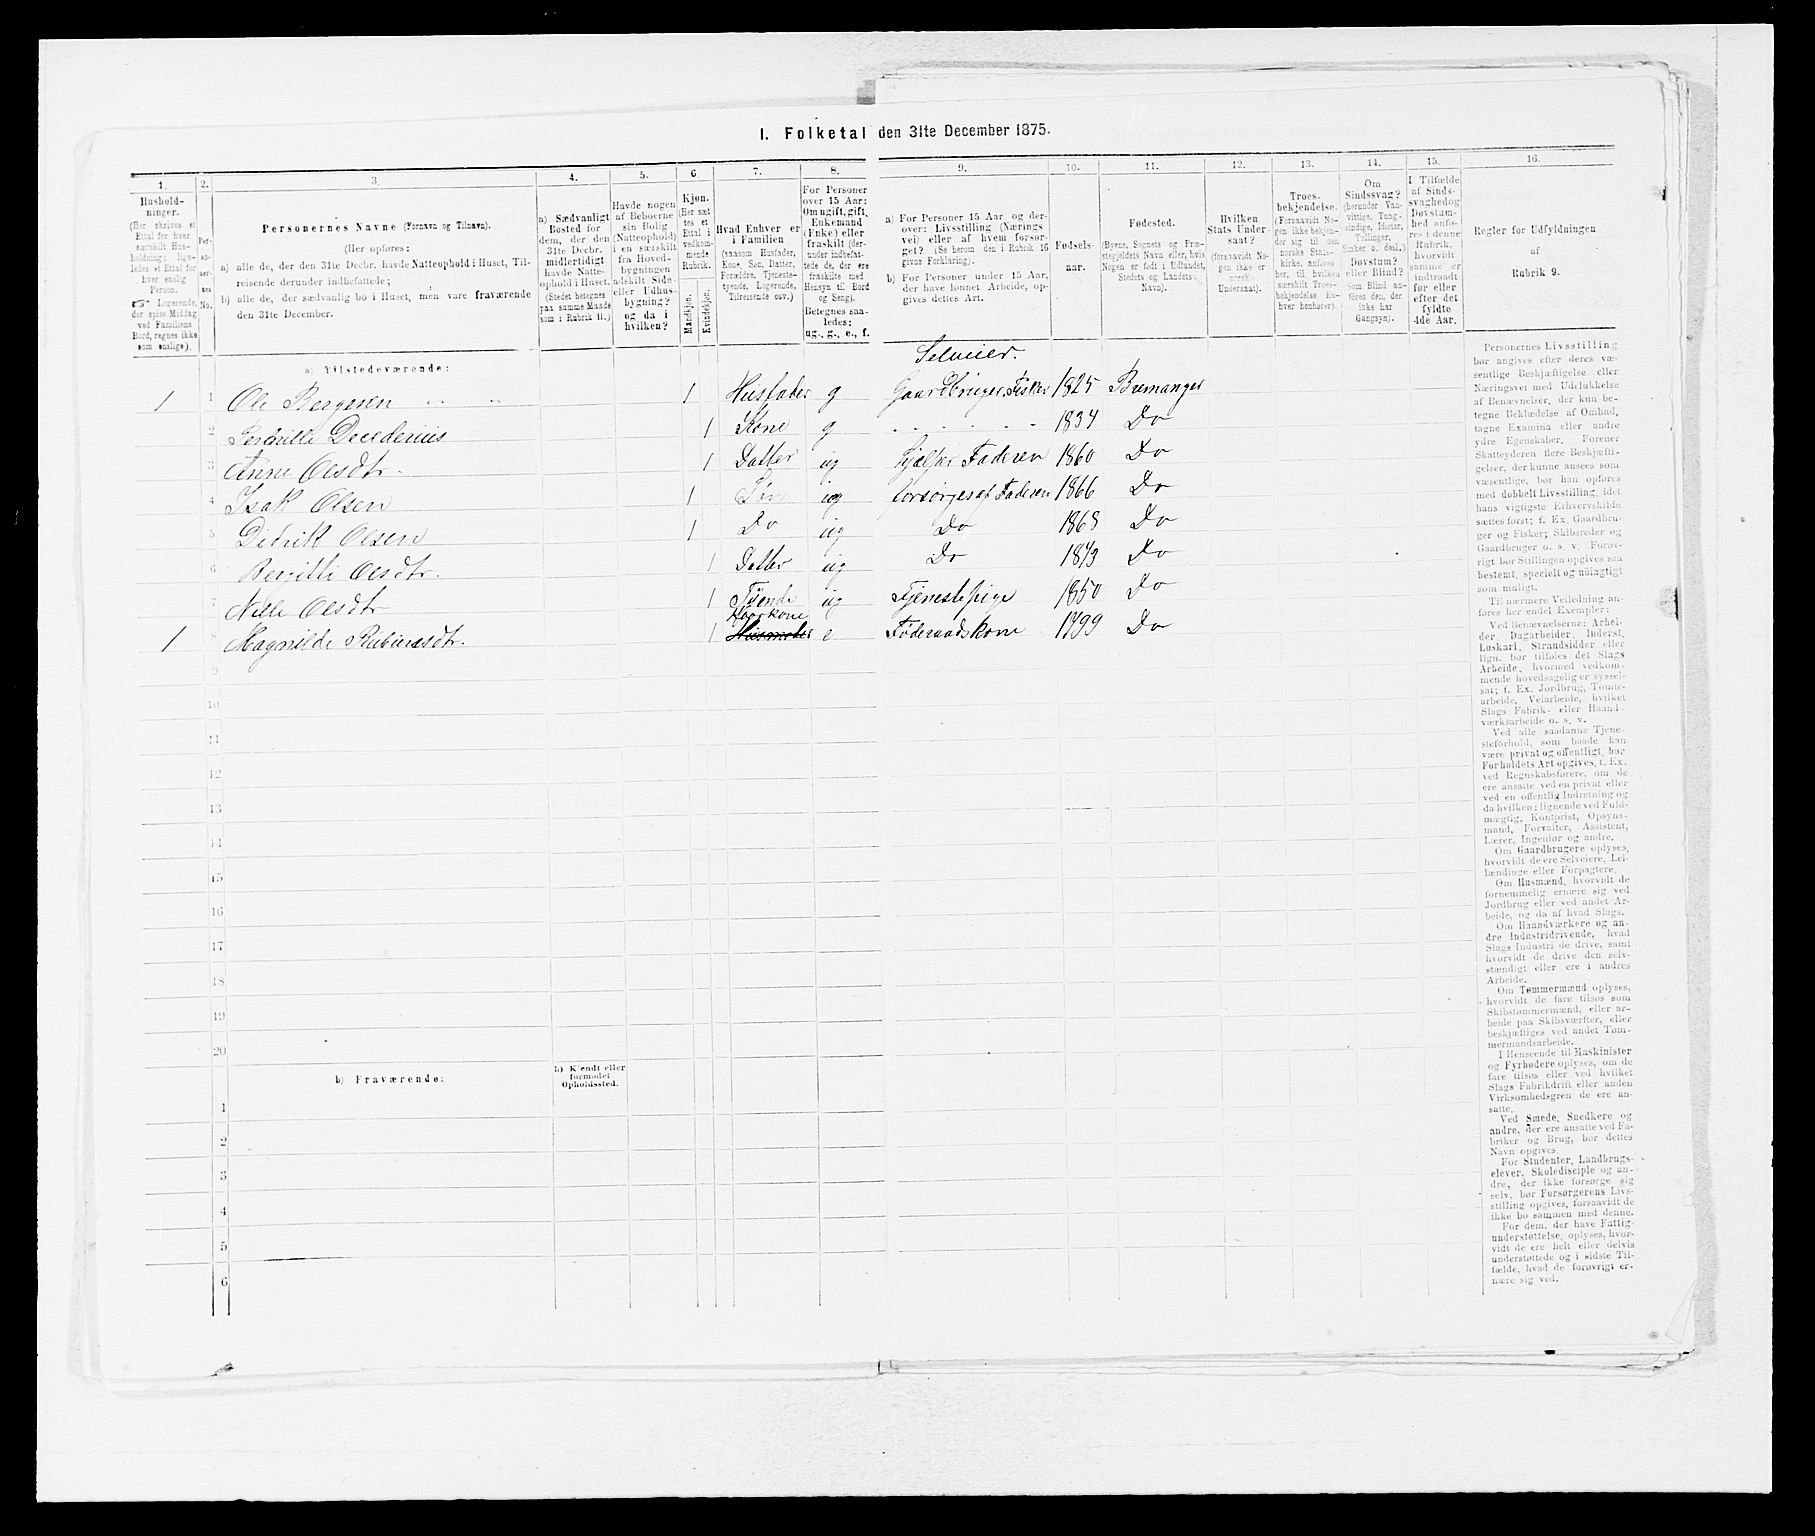 1. Folketal den 31te December 1875.
1. 2. 3. 4. 5. 6 7. 8. 9. 10. 11. 12. 13. 14. 15. 16.
Hushold-
ninger.
(Her skrives et
Ettal for hver
særskilt Hus-
holdning; lige-
ledes et Ettal for
hver enslig
Person.
☞ Logerende,
der spise Middag
ved Familiens
Bord, regnes ikke
som enslige).
Per-
so-
ner-
nes
No.
Personernes Navne (Fornavn og Tilnavn).
(Her opføres:
a) alle de, der den 31te Decbr. havde Natteophold i Huset, Til-
reisende derunder indbefattede;
b) alle de, der sædvanlig bo i Huset, men vare fraværende
den 31te December.
a) Sædvanligt
Bosted for
dem, der den
31te Decbr.
midlertidigt
havde Natte-
ophold i Huset.
(Stedet betegnes
paa samme Maade
som i Rubrik 11.)
Havde nogen
af Beboerne
sin Bolig
(Natteophold)
i en særskilt
fra Hoved-
bygningen
adskilt Side-
eller Udhus-
bygning?
og da i
hvilken?
Kjøn.
(Her sæt
tes et
Ettal i
vedkom-
mende
Rubrik.
Mandkjøn.
Kvindekjøn.
Hvad Enhver er
i Familien
(saasom Husfader,
Kone, Søn, Datter,
Forældre, Tjeneste-
tyende, Logerende,
Tilreisende osv.)
For Personer
over 15 Aar:
Om ugift, gift,
Enkemand
(Enke) eller
fraskilt (der-
under indbefat-
tede de, der ere
fraskilte med
Hensyn til Bord
og Seng).
Betegnes saa-
ledes:
ug., g., e., f.
a) For Personer 15 Aar og der-
over: Livsstilling (Nærings
vei) eller af hvem forsør-
get? (Se herom den i Rubrik 16
givne Forklaring).
b) For Personer under 15 Aar,
der have lønnet Arbeide, op-
gives dettes Art.
Fødsels-
aar.
Fødested.
(Byens, Sognets og Præ-
stegjeldets Navn eller, hvis
Nogen er født i Udlandet,
Stedets og Landets
Navn).
Hvilken
Stats Under-
saat?
(forsaavidt No-
gen ikke er
norsk
Undersaat).
Troes-
bekjendelse.
(Forsaavidt No-
gen ikke bekjen-
der sig til den
norske Stats-
kirke, anføres
her, til hvilken
særskilt Troes-
bekjendelse En-
hver henhører).
Om
Sindssvag?
(herunder Van-
vittige, Tung-
sindige, Idioter,
Tullinger,
Sinker o. desl.)
Døvstum?
eller Blind?
(Som Blind an-
føres den, der
ikke har
Gangsyn).
I Tilfælde
af Sinds-
svaghed og
Døvstum-
hed anfø-
res i denne
Rubrik,
hvorvidt
samme er
indtraadt
før eller
efter det
fyldte
4de Aar.
Regler for Udfyldningen
af
Rubrik 9.
a) Tilstedeværende:
Selveier.
1 1 Ole Børgesen 1 Husfader g Gaardbruger, Fisker 1825 Bremanger
2 1 Kone g 1834 Do
3 Anne Olsdtr. 1 Datter ug hjælper Faderen 1860 Do
4 Isak Olsen 1 Søn ug forsørges af Faderen 1866 Do
5 Didrik Olsen 1 Do ug Do 1868 Do
6 Bergitte Olsdtr. 1 Datter ug Do 1873 Do
7 Nille Olsdtr 1 Tjende ug Tjenestepige 1850 Do
Kaarkone
1 Magnilde Rubinesdtr. 1 Husmoder e Føderaadskone 1799 Do
9
10
11
12
13
14
15
16
17
18
19
20
b) Fraværende:
b) Kjendt eller
formodet
Opholdssted.
1
2
3
4
5
6
Personernes Livsstilling
bør angives efter deres væ-
sentlige Beskjæftigelse eller
Næringsvei med Udelukkelse
af Benævnelser, der kun be-
tegne Beklædelse af Ombud,
tagne Examina eller andre
ydre Egenskaber. Forener
Skatteyderen flere Beskjæfti-
gelser, der kunne ansees som
væsentlige, bør han opføres
med dobbelt Livsstilling, idet
hans vigtigste Erhvervskilde
sættes først; f. Ex. Gaardbru-
ger og Fisker; Skibsreder og
Gaardbruger o. s. v. Forøv-
rigt bør Stillingen opgives saa
bestemt, specielt og nøiagtigt
som muligt.
Til nærmere Veiledning an-
føres her endel Exempler:
Ved Benævnelserne: Arbei-
der, Dagarbeider, Inderst,
Løskarl, Strandsidder eller
lign. bør tilføies det Slags
Arbeide, hvormed vedkom-
mende hovedsagelig er syssel-
sat; f. Ex. Jordbrug, Tomte-
arbeide, Veiarbeide, hvilket
Slags Fabrik- eller Haand-
værksarbeide o. s. v.
Ved alle saadanne Tjene-
steforhold, som baade kan
være privat og offentligt, bør
Forholdets Art opgives, f. Ex.
ved Regnskabsførere, om de
ere ansatte ved en privat eller
ved en offentlig Indretning og
da hvilken; lignende ved Fuld-
mægtig, Kontorist, Opsyns-
mand, Forvalter, Assistent,
Lærer, Ingeniør og andre.
Om Gaardbrugere oplyses,
hvorvidt de ere Selveiere, Lei-
lændinge eller Forpagtere.
Om Husmænd, hvorvidt de
fornemmelig ernære sig ved
Jordbrug eller ved andet Ar-
beide, og da af hvad Slags.
Om Haandværkere og an-
dre Industridrivende, hvad
Slags Industri de drive, samt
hvorvidt de drive den selv-
stændigt eller ere i andres
Arbeide.
Om Tømmermænd oplyses,
hvorvidt de fare tilsøs som
Skibstømmermænd, eller ar-
beide paa Skibsværfter, eller
beskjæftiges ved andet Tøm-
mermandsarbeide.
I Henseende til Maskinister
og Fyrbødere oplyses, om de
fare tilsøs eller ved hvilket
Slags Fabrikdrift eller anden
Virksomhedsgren de ere an-
satte.
Ved Smede, Snedkere og
andre, der ere ansatte ved Fa-
briker og Brug, bør dettes
Navn opgives.
For Studenter, Landbrugs-
elever, Skoledisciple og an-
dre, der ikke forsørge sig
selv, bør Forsørgerens Livs-
stilling opgives, forsaavidt de
ikke bo sammen med denne.
For dem, der have Fattig-
understøttelse, oplyses, hvor-
vidt de ere helt eller delvis
understøttede og i sidste Til-
fælde, hvad de forøvrigt er-
nære sig ved.